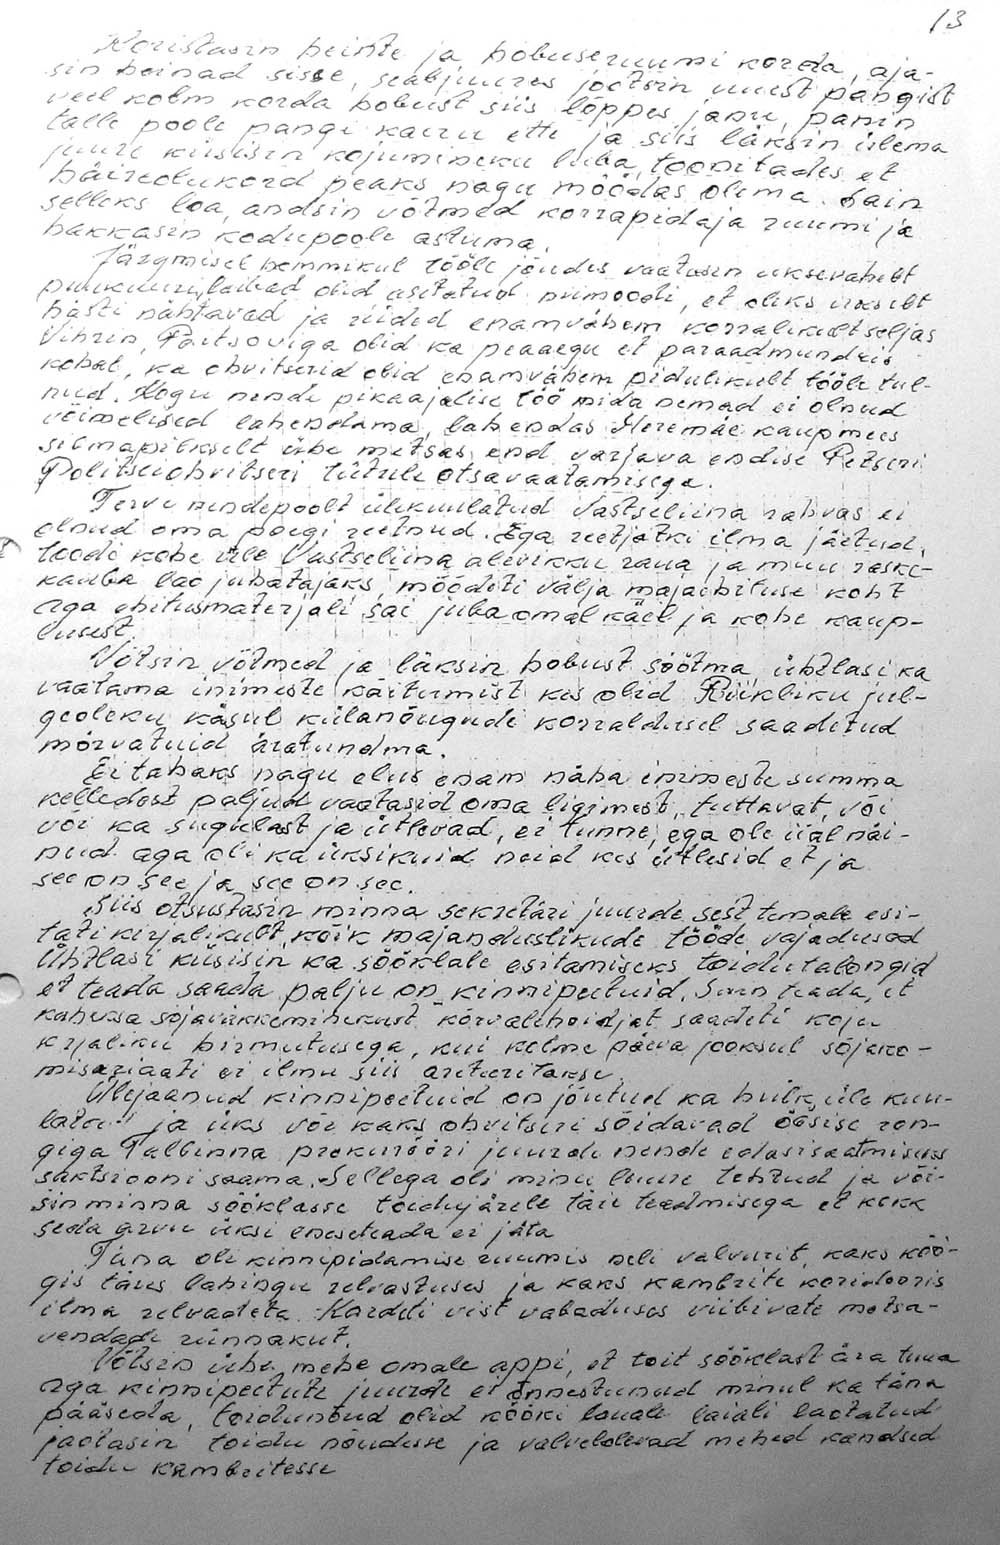 13
Koristasin heinte ja hobuseruumi korda, aja-
sin heinad sisse, sealjuures jootsin uuest pangist
veel kolm korda hobust siis lõppes janu, panin
talle poole pangi kaeru ette ja siis läksin ülema
juure küsisin kojumineku luba, toonitades et
häireolukord peaks nagu möödas olema. Sain
selleks loa, andsin võtmed korrapidaja ruumi ja
hakkasin kodupoole astuma.
Järgmisel hommikul tööle jõudes vaatasin uksevahelt
puukuuri, laibad olid asetatud niimoodi, et oleks ukselt
hästi nähtavad ja riided enamvähem korralikult seljas
Vihrin, Paitsoviga olid ka peaaegu et paraadmundris
kohal, ka ohvitserid olid enamvähem pidulikult tööle tul-
nud. Kogu nende pikaajalise töö mida nemad ei olnud
võimelised lahendama, lahendas Meremäe kaupmees
silmapilkselt ühe metsas end varjava endise Petseri
Politseiohvitseri tütrele otsavaatamisega.
Terve nendepoolt ülekuulatud Vastseliina rahvas ei
olnud oma poegi reetnud. Ega reetjatki ilma jäetud,
toodi kohe üle Vastseliina alevikku raua ja muu raske-
kauba lao juhatajaks, mõõdeti välja majaehituse koht
aga ehitusmaterjali sai juba omal käel ja kohe kaup-
lusest.
Võtsin võtmed ja läksin hobust söötma, ühtlasi ka
vaatama inimeste käitumist kes olid Riikliku jul-
geoleku käsul külanõugude korraldusel saadetud
mõrvatuid äratundma.
Ei tahaks nagu elus enam näha inimeste summa
kelledest paljud vaatasid oma ligimest, tuttavat, või
või ka sugulast ja ütlevad, ei tunne, ega ole iial näi-
nud aga oli ka üksikuid neid kes ütlesid et ja
see on see ja see on see.
Siis otsustasin minna sekretäri juurde sest temale esi-
tati kirjalikult kõik majanduslikude tööde vajadused
Ühtlasi küsisin ka sööklale esitamiseks toidutalongid
et teada saada palju on kinnipeetuid. Sain teada, et
kaheksa sõjaväkkeminekust kõrvalehoidjat saadeti koju
kirjaliku hirmutusega, kui kolme päeva jooksul sõjako-
misariaati ei ilmu siis areteeritakse.
Ülejäänud kinnipeetuid on jõutud ka hulk üle kuu-
latud ja üks või kaks ohvitseri sõidavad öösise ron-
giga Tallinna prokuröri juurde nende edasisaatmiseks
sanktsiooni saama. Sellega oli minu luure tehtud ja või-
sin minna sööklasse toidujärele täie teadmisega et kokk
seda arvu üksi enesele teada ei jäta
Täna oli kinnipidamise ruumis neli valvurit, kaks köö-
gis täies lahingu relvastuses ja kaks kambrite koridooris
ilma relvadeta. Kardeti vist vabaduses viibivate metsa-
vendade rünnakut.
Võtsin ühe mehe omale appi, et toit sööklast ära tuua
aga kinnipeetute juurde ei õnnestunud minul ka täna
pääseda, toidunõud olid kööki lauale laiali laotatud
jaotasin toidu nõudesse ja valvelolevad mehed kandsid
toidu kambritesse